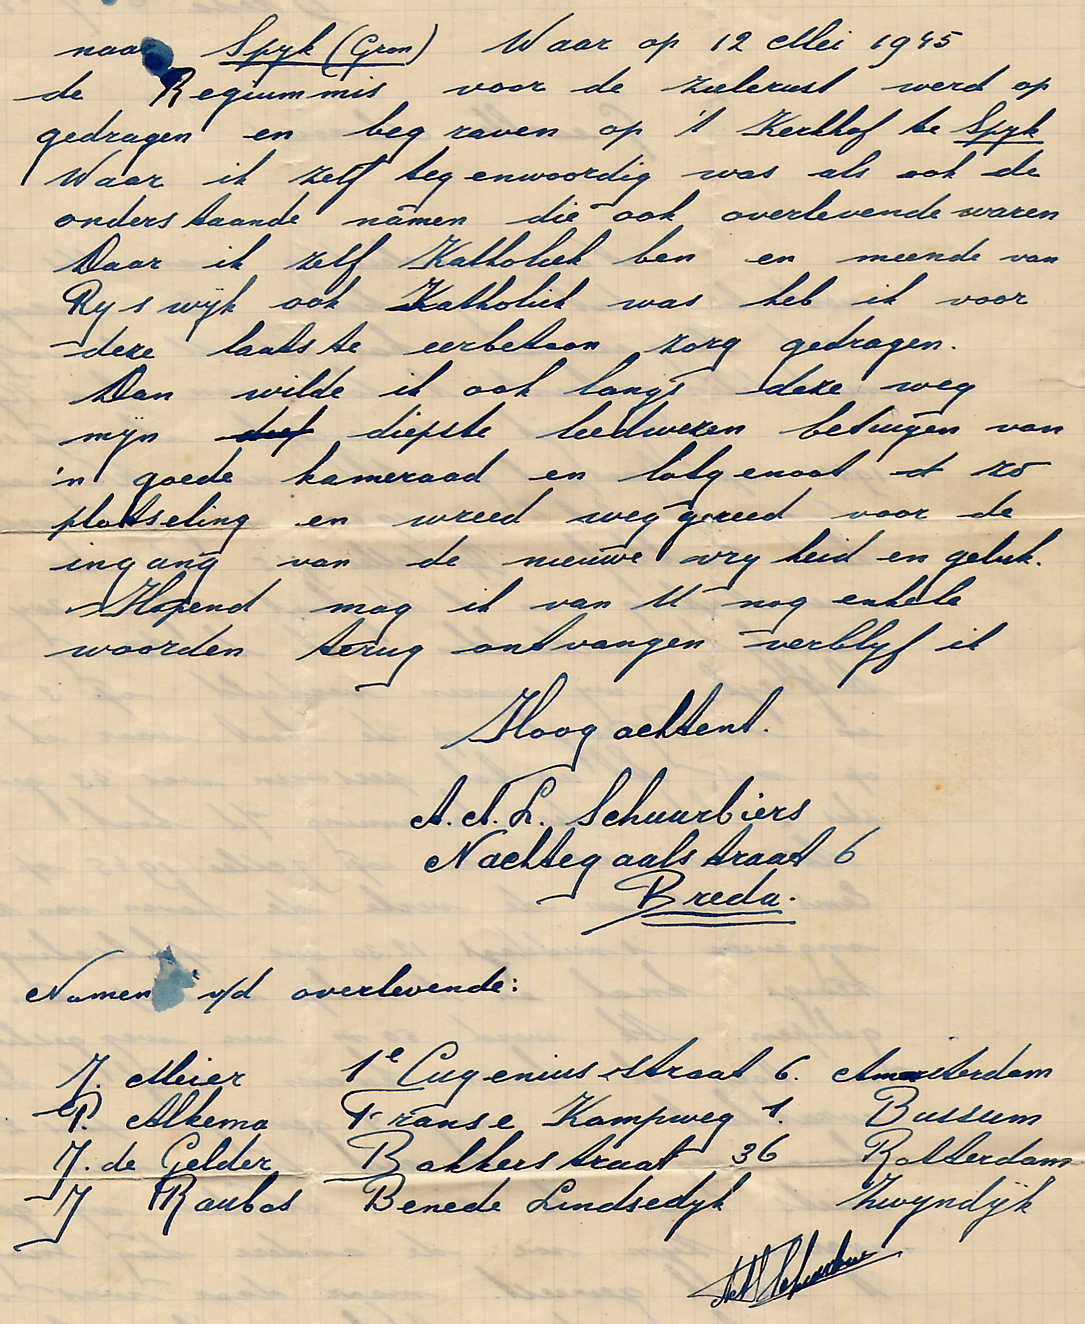 naar Spyk (Gron) Waar op 12 Mei 1945
de Requimmis voor de zielerust werd op
gedragen en begraven op 't Kerkhof te Spyk
Waar ik zelf tegenwoordig was als ook de
onderstaande namen die ook overlevende waren
Daar ik zelf Katholiek ben en meende van
Ryswijk ook Katholiek was heb ik voor
deze laatste eerbetoon zorg gedragen.
Dan wilde ik ook langs deze weg
mijn diepste leedwezen betuigen van
'n goede kameraad en lotgenoot zo
plotseling en wreed weg gereed voor de
ingang van de nieuwe vryheid en geluk.
Hopend mag ik van U nog enkele
woorden terug ontvangen verblyf ik
Hoog achtent.
A.A.L. Schuurbiers
Nachtegaalstraat 6
Breda.
Namen v/d overlevende:
J. Meier 1e Eugenius straat 6. Amsterdam
P. Alkema Franse Kampweg 1. Bussum
J. de Gelder Bakkerstraat 36 Rotterdam
J Roubos Benede Lindsedyk Zwyndijk